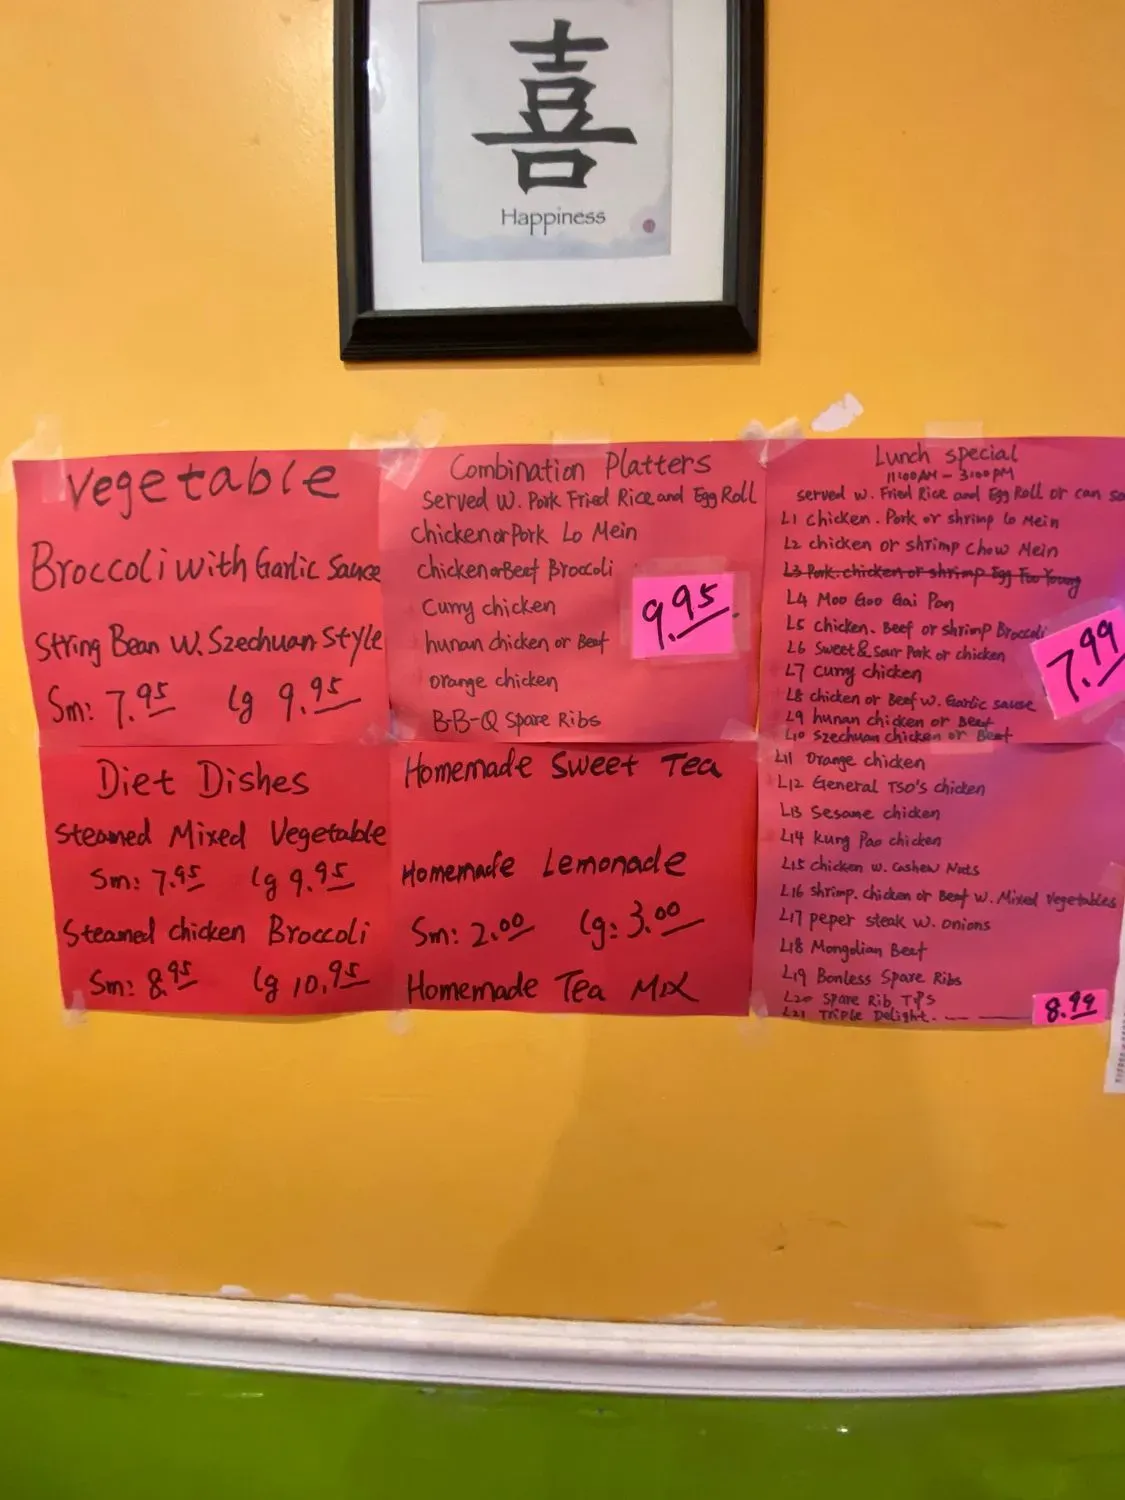 喜
Happiness
Vegetable
Broccoli with Garlic Sauce
String Bean W. Szechuan Style
Sm: 7.95 lg 9.95
Combination Platters
Served W. Pork Fried Rice and Egg Roll
Chicken or Pork Lo Mein
chicken or Beef Broccoli
Curry chicken
hunan chicken or Beef
orange chicken
B-B-Q Spare Ribs
9.95
Lunch special
11:00AM - 3:00PM
served w. Fried Rice and Egg Roll or can so
L1 chicken. Pork or shrimp Lo Mein
L2 chicken or shrimp chow Mein
L3 Pork. chicken or shrimp Egg Foo Young
L4 Moo Goo Gai Pan
L5 chicken. Beef or shrimp Broccoli
L6 Sweet & Sour Pork or chicken
L7 Curry chicken
L8 chicken or Beef w. Garlic sause
L9 hunan chicken or Beef
L10 Szechuan chicken or Beef
7.99
Diet Dishes
Steamed Mixed Vegetable
Sm: 7.95 lg 9.95
Steamed chicken Broccoli
Sm: 8.95 lg 10.95
Homemade Sweet Tea
Homemade Lemonade
Sm: 2.00 lg: 3.00
Homemade Tea Mix
L11 Orange chicken
L12 General TSO's chicken
L13 Sesame chicken
L14 Kung Pao chicken
L15 chicken w. Cashew Nuts
L16 shrimp. chicken or Beef w. Mixed Vegetables
L17 peper steak w. onions
L18 Mongolian Beef
L19 Bonless Spare Ribs
L20 Spare Rib Tips
L21 Triple Delight
8.99